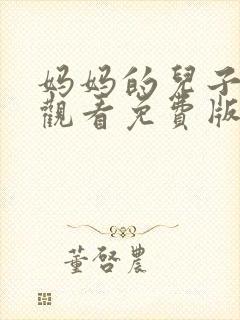 妈妈的兒子
觀看免費版
董啓農